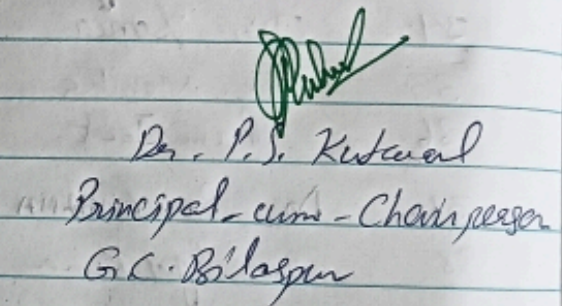 Dr. P.S. Katwal
Principal-cum-Chairperson
G.C. Bilaspur